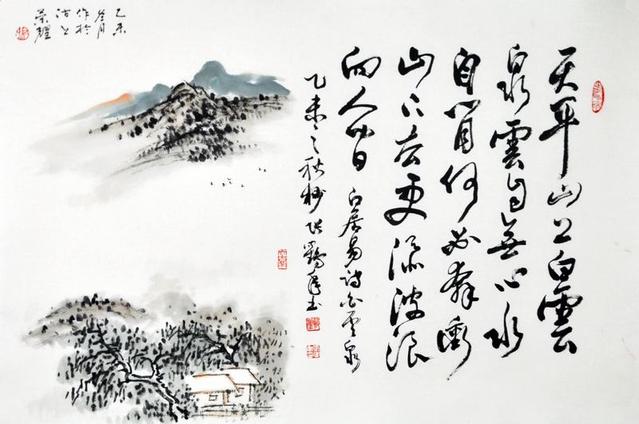 天平山上白雲
泉雲自無心水
自閒何必奔衝
山下去更添波浪
向人間 白居易诗白雲泉
乙未之秋杪 張鶴書
乙未
冬月
作於
沽上
榮耀